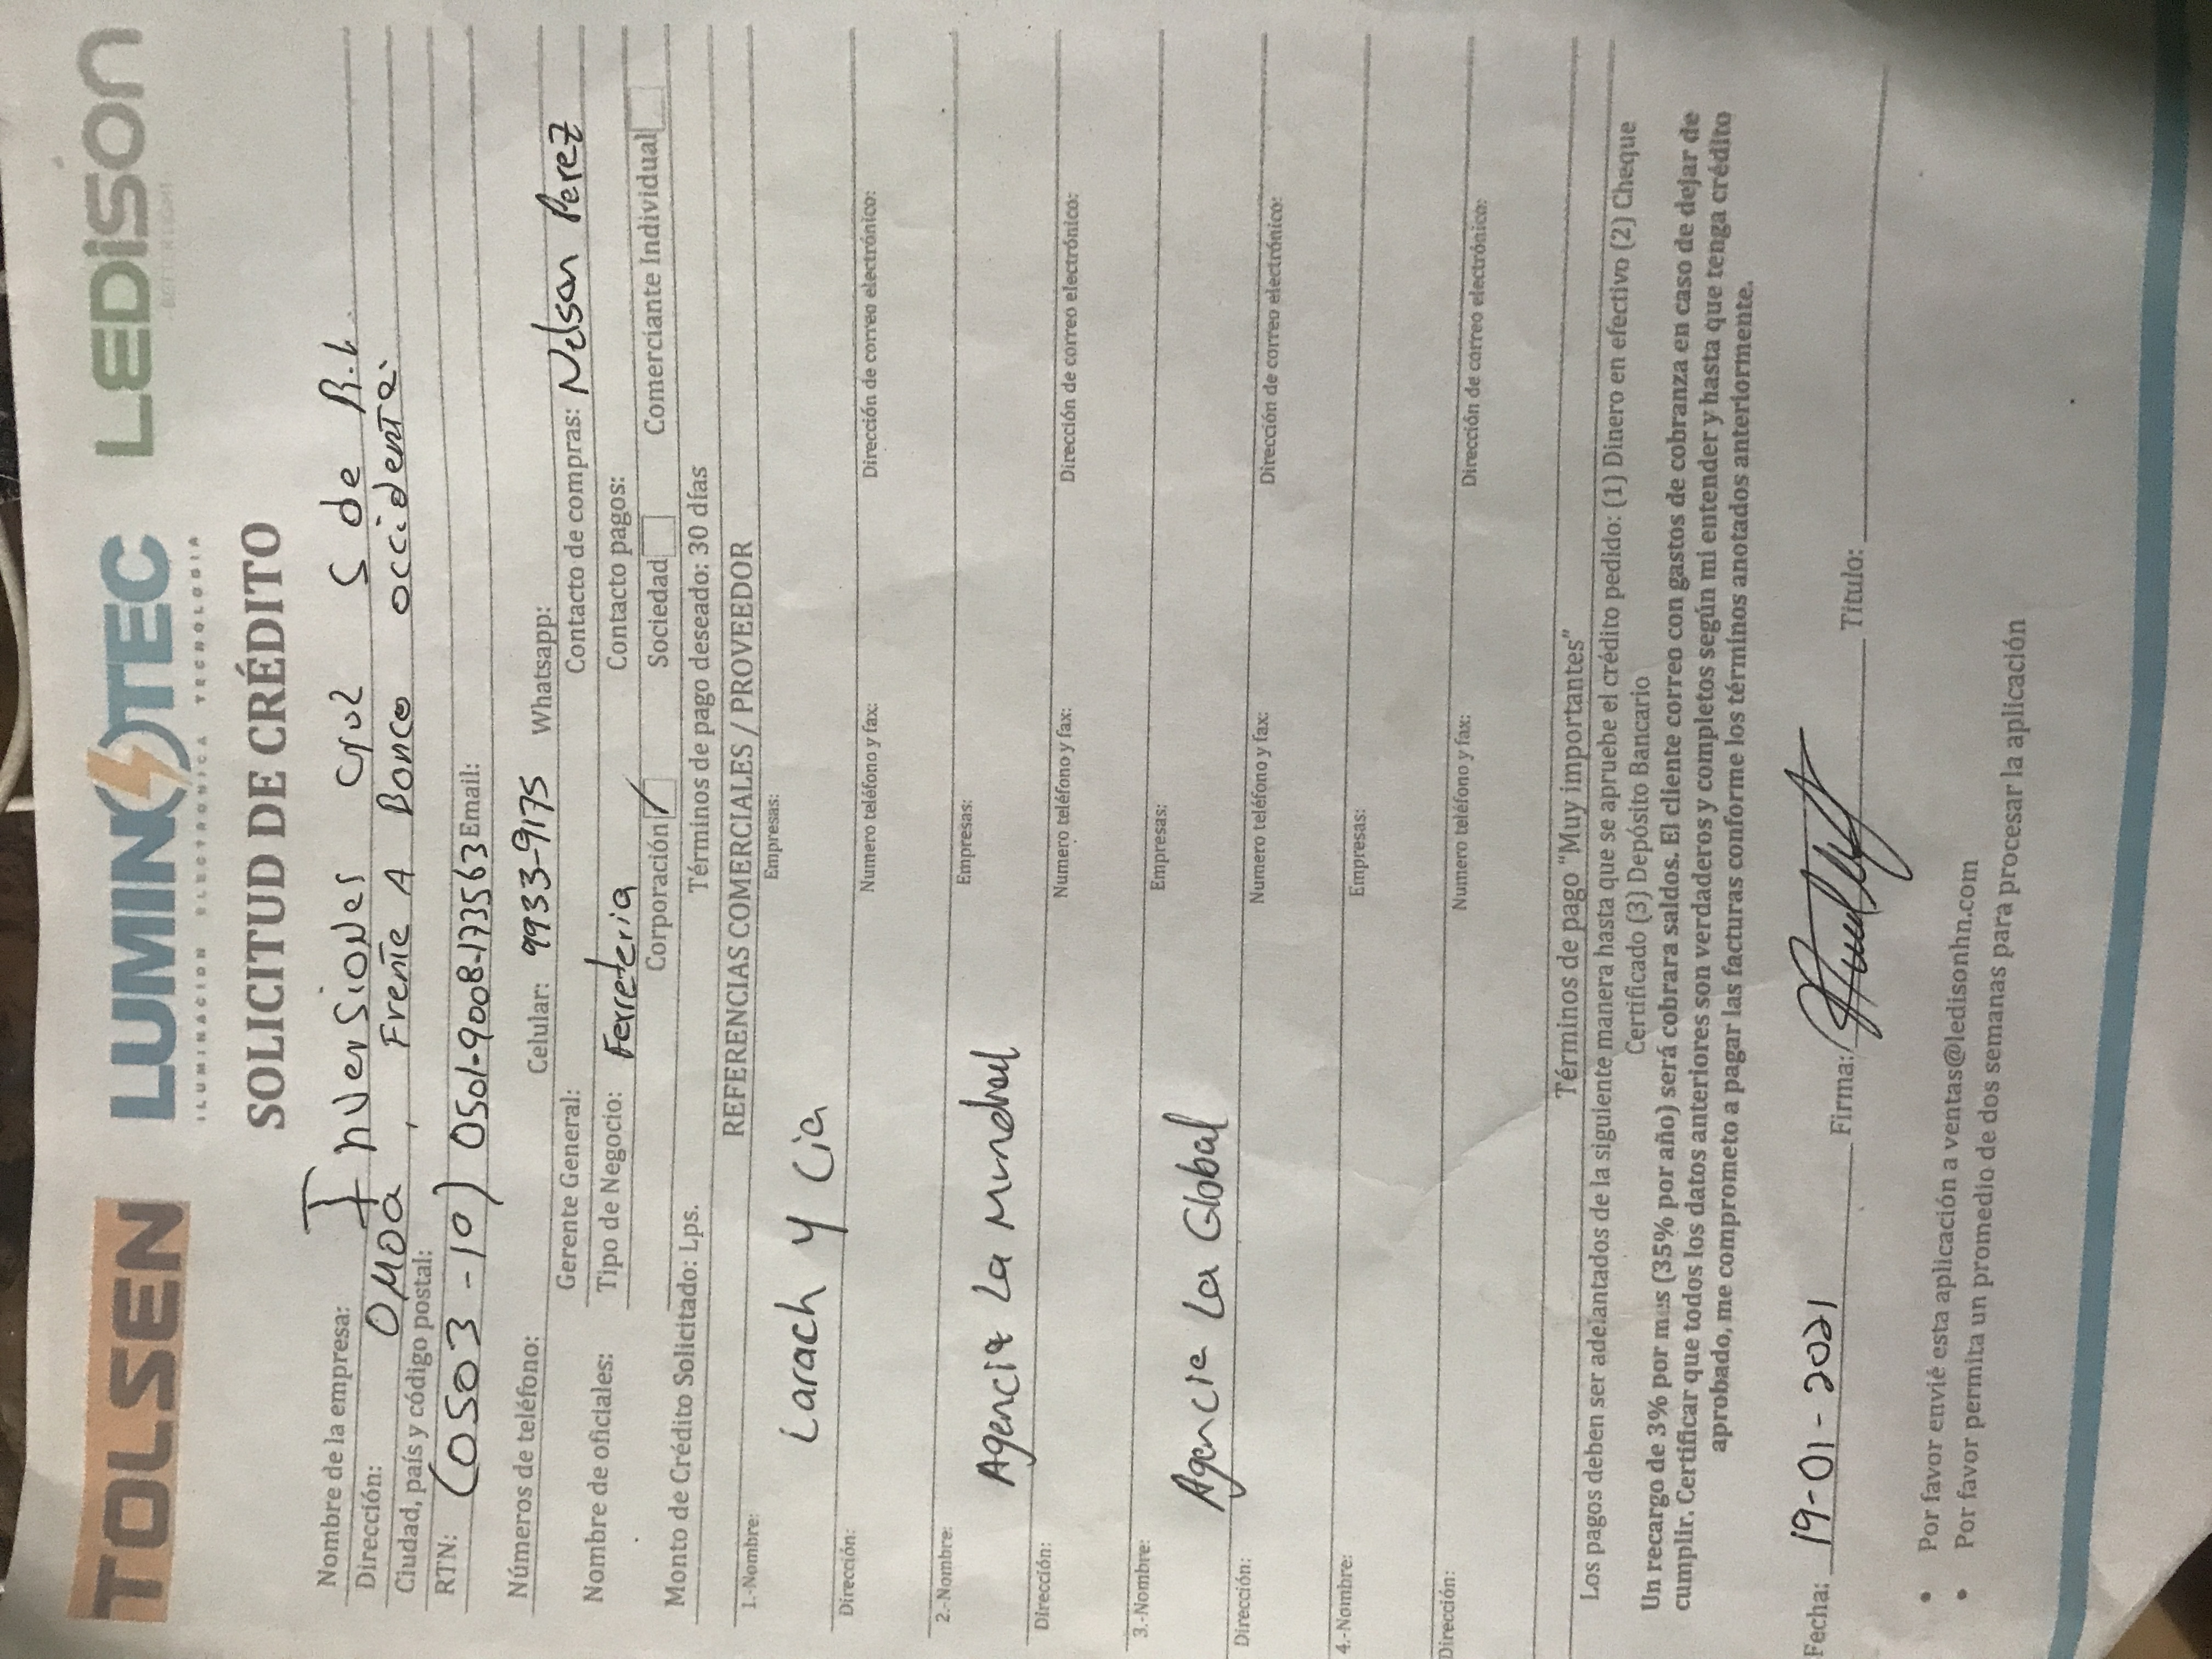 TOLSEN LUMINOTEC LEDISON
ILUMINACION ELECTRONICA TECNOLOGIA BETTER LIGHT
SOLICITUD DE CRÉDITO
Nombre de la empresa: Inversiones Cruz S de R.L.
Dirección: OMOA, Frente A Banco occidente.
Ciudad, país y código postal:
RTN: (0503-10) 0501-9008-173563 Email:
Números de teléfono: Celular: 9933-9175 Whatsapp:
Gerente General: Contacto de compras: Nelson Perez
Nombre de oficiales: Tipo de Negocio: Ferreteria Contacto pagos:
Corporación Sociedad Comerciante Individual
Monto de Crédito Solicitado: Lps. Términos de pago deseado: 30 días
REFERENCIAS COMERCIALES / PROVEEDOR
1.-Nombre: Empresas:
Larach y Cia
Dirección: Numero teléfono y fax: Dirección de correo electrónico:
2.-Nombre: Empresas:
Agencia La Mundial
Dirección: Numero teléfono y fax: Dirección de correo electrónico:
3.-Nombre: Empresas:
Agencia La Global
Dirección: Numero teléfono y fax: Dirección de correo electrónico:
4.-Nombre: Empresas:
Dirección: Numero teléfono y fax: Dirección de correo electrónico:
Términos de pago “Muy importantes”
Los pagos deben ser adelantados de la siguiente manera hasta que se apruebe el crédito pedido: (1) Dinero en efectivo (2) Cheque
Certificado (3) Depósito Bancario
Un recargo de 3% por mes (35% por año) será cobrara saldos. El cliente correo con gastos de cobranza en caso de dejar de
cumplir. Certificar que todos los datos anteriores son verdaderos y completos según mi entender y hasta que tenga crédito
aprobado, me comprometo a pagar las facturas conforme los términos anotados anteriormente.
Fecha: 19-01-2021 Firma: Titulo:
• Por favor envié esta aplicación a ventas@ledisonhn.com
• Por favor permita un promedio de dos semanas para procesar la aplicación